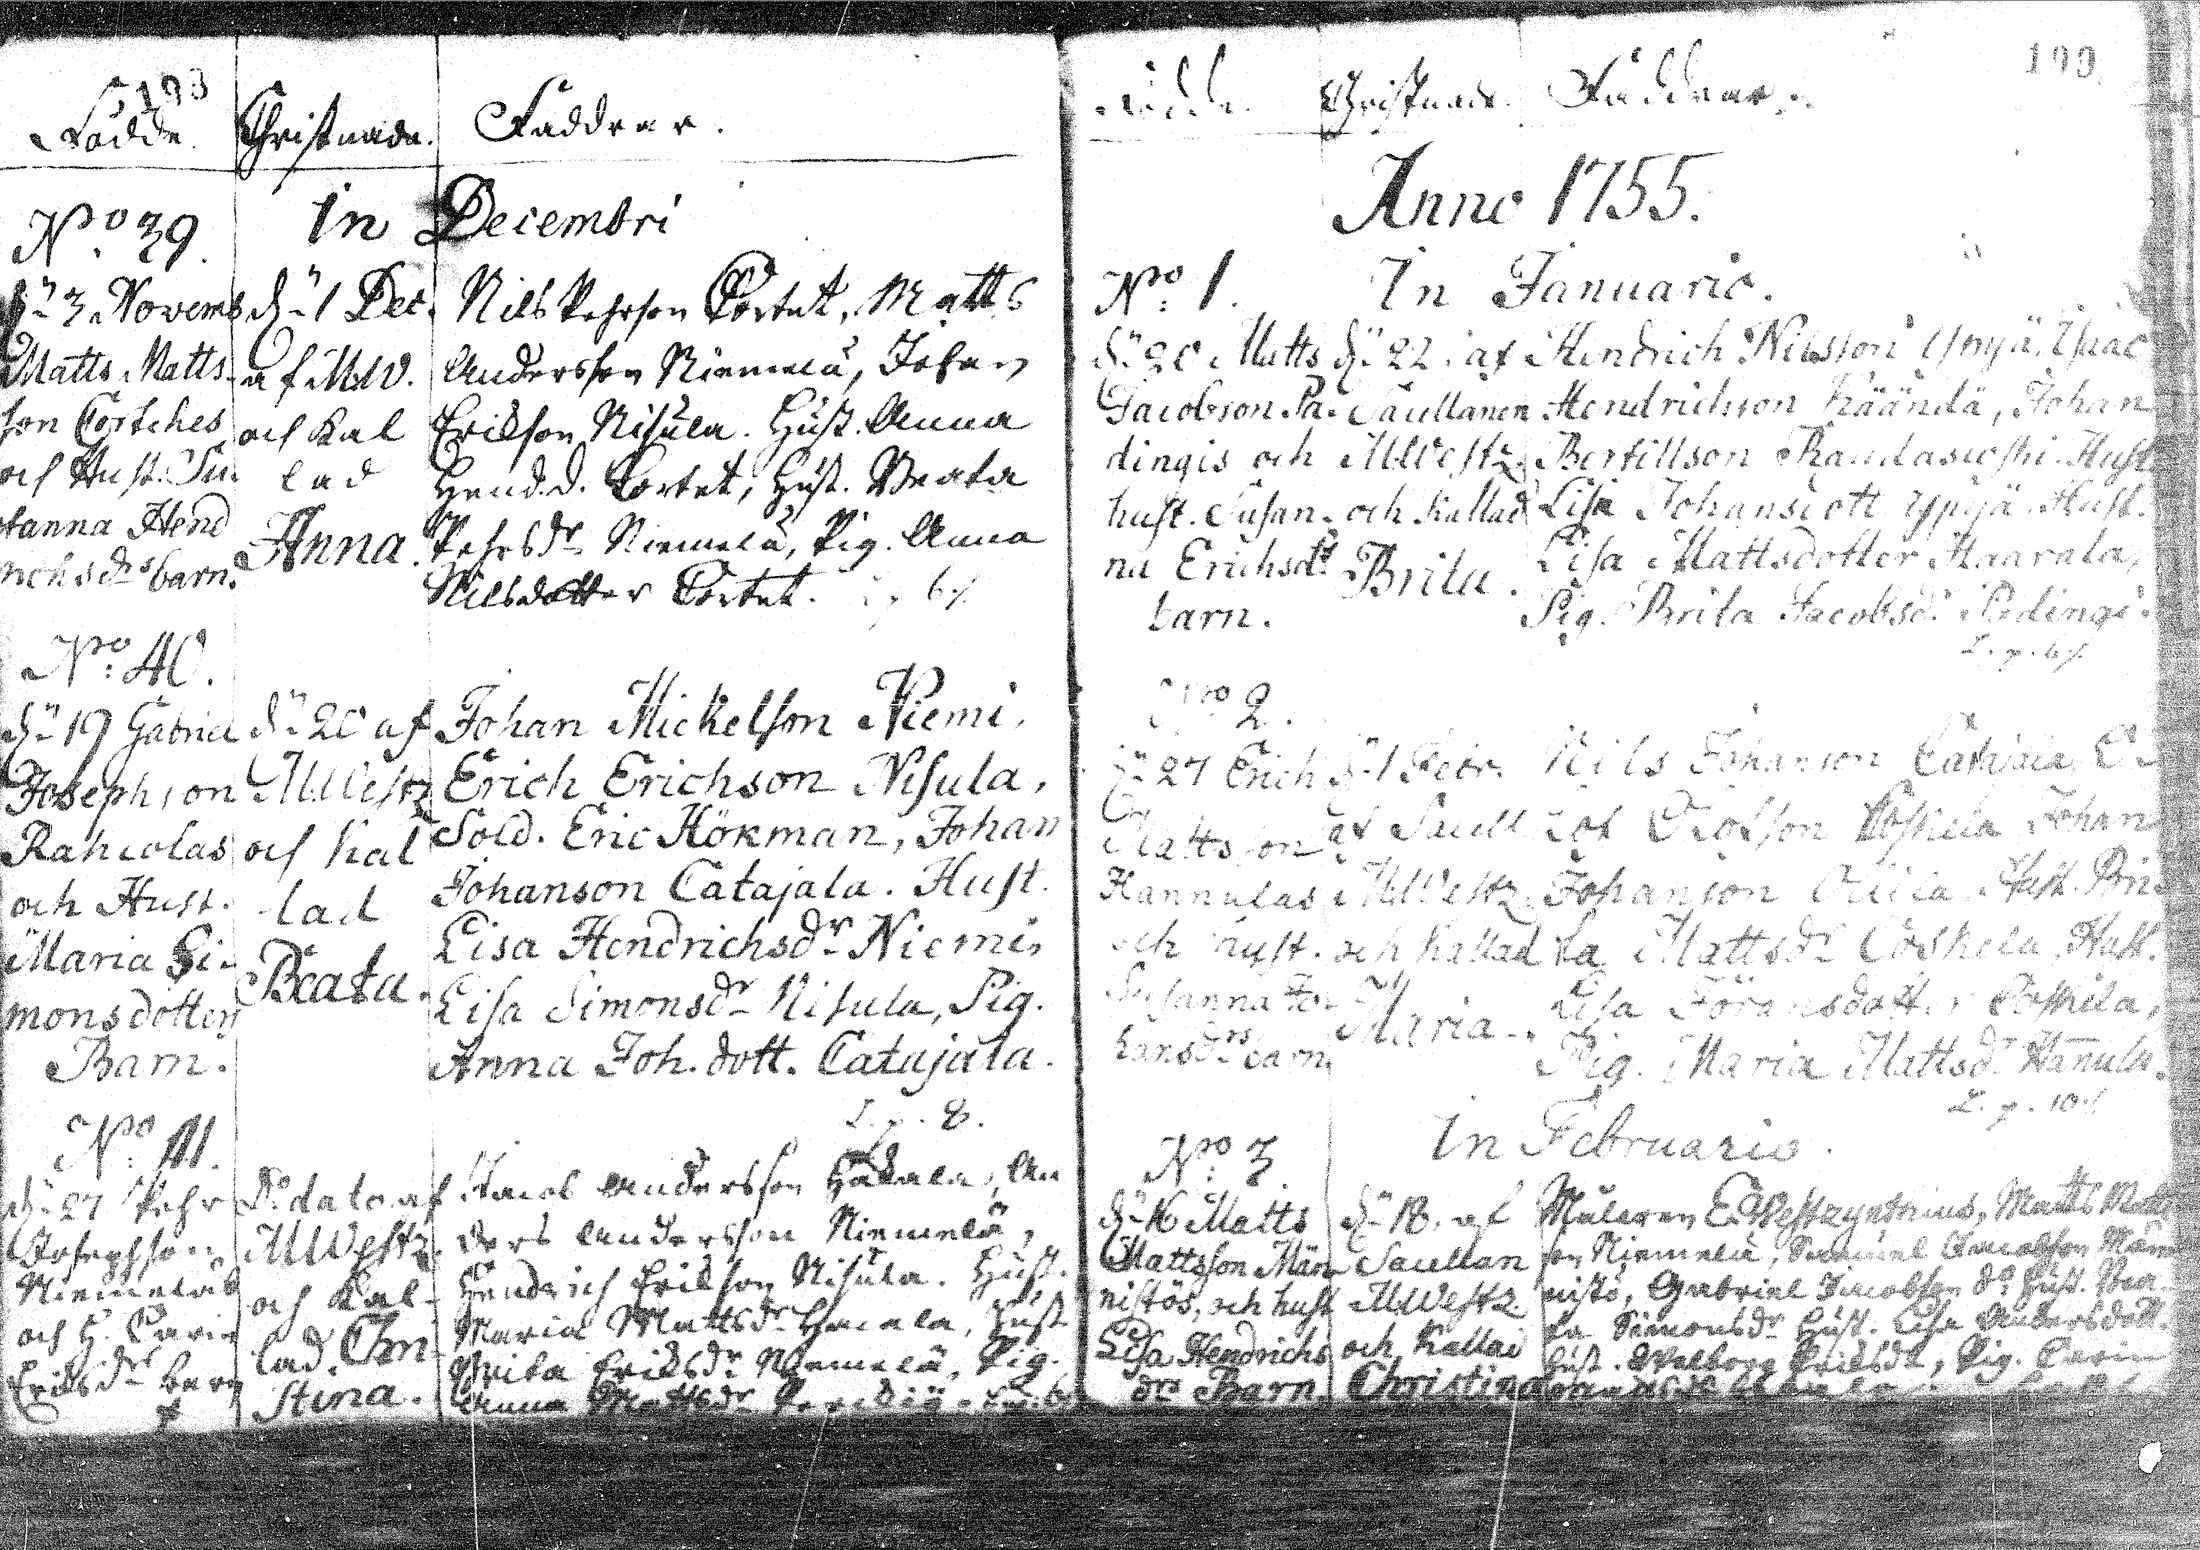 193
Födde. Christnade. Faddrar.
In Decembri
No. 39.
dn 3 Novemb
Matts Matts-
son Cortehes
och Hust. Su-
sanna Hend
richsdrs barn.
dn 1 Dec.
af M.W.
och Kal
lad
Anna.
Nils Pehrson Cortet, Matts
Andersson Niemelä, Johan
Erikson Nisula. Hust. Anna
Hend.d. Cortet, Hust. Beata
Pehrsdr Niemelä, Pig. Anna
Nilsdotter Cortet.
No. 40.
dn 19 Gabriel
Josephson
Rahcolas
och Hust.
Maria Si-
monsdotters
Barn.
dn 20 af
M.Westz
och Kal
lad
Beata.
Johan Mickelson Niemi,
Erich Erichson Nisula,
Sold. Eric Hökman, Johan
Johanson Catajala. Hust.
Lisa Hendrichsdr Niemi,
Lisa Simonsdr Nisula, Pig.
Anna Joh. dott. Catajala.
L. p. 8.
No. 41.
dn 27 Pehr
Josephson
Niemeläs
och H. Carin
Eriksdrs barn
Do dato af
MWestz.
och Kal-
lad Chri-
stina.
Jacob Andersson Hakala, An
ders Andersson Niemelä,
Hendrich Erikson Nisula. Hust.
Maria Mattsdr Hacala, Hust
Brita Eriksdr Niemelä, Pig.
Anna Mattsdr
199
Födde. Christnade. Faddrar.
Anno 1755.
No. 1. In Januario.
dn 20 Matts
Jacobson Pe-
dingis och
hust. Susan-
na Erichsdrs
barn.
dn 22. af
Saullanen
M.Westz.
och Kallad
Brita.
Hendrich Nilsson Ypyä, Isaac
Hendrichson Käändä, Johan
Bertillson Raudascoski. Hust.
Lisa Johansdott Ypyä. Hust.
Lisa Mattsdotter Haarala,
Pig. Brita Jacobsdr Pedingi.
L. p. 6
No 2.
dn 27 Erich
Mattsson
Hannulas
och hust.
Susanna Jo-
hansdrs barn.
dn 1 Febr.
af Saull
M.Westz.
och Kallad
Maria.
Nils Johanson Catajala, O-
lof Olofson Coskela Johan
Johanson Ollila. Hust. Bri-
ta Mattsdr Coskela, Hust.
Lisa Jöransdotter Coskela,
Pig. Maria Mattsdr Hannula.
L. p. 10
In Februario.
No. 3
dn 16 Matts
Mattsson Män
nistös, och hust
Lisa Hendrichs
drs Barn.
dn 18. af
Saullan
M.Westz.
och Kallad
Christina
Målaren E. Westzynthius, Matts Matts
son Niemelä, Samuel Jacobson Män
nistö, Gabriel Jacobson do, Hust. Bea-
ta Simonsdr Hust. Lisa Andersdott.
Hust. Walborg Eriksdr, Pig. Carin